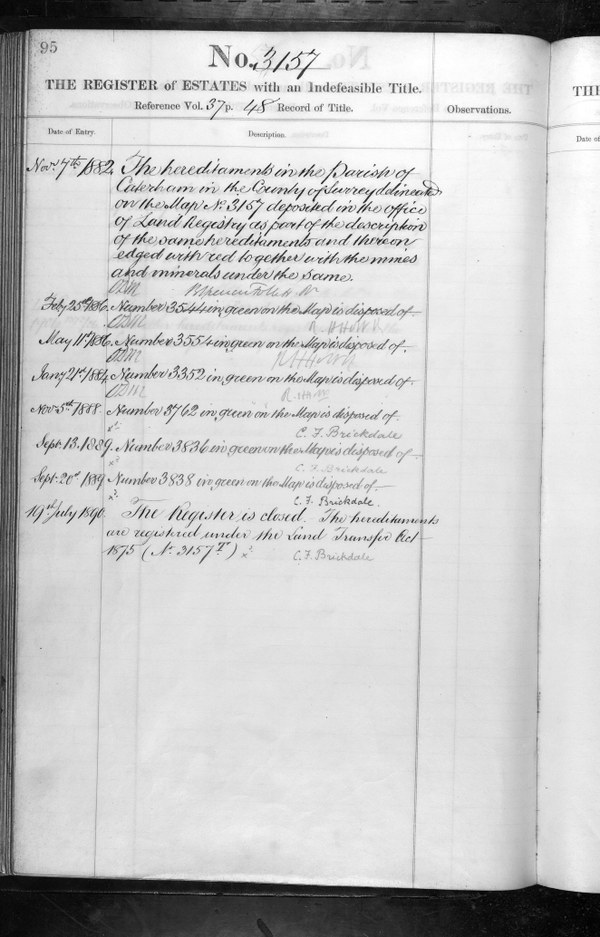 95
No. 3157
THE REGISTER of ESTATES with an Indefeasible Title.
Reference Vol. 37 p. 48 Record of Title.
Observations.
Date of Entry.
Description.
Novr. 7th 1882. The hereditaments in the Parish of
Caterham in the County of Surrey delineated
on the Map No. 3157 deposited in the office
of Land Registry as part of the description
of the same hereditaments and thereon
edged with red together with the mines
and minerals under the same.
Feby 25th 1886. Number 3544 in green on the Map is disposed of.
May 11th 1886. Number 3554 in green on the Map is disposed of.
Jany 21st 1884. Number 3352 in green on the Map is disposed of.
Nov 5th 1888. Number 3762 in green on the Map is disposed of.
C. F. Brickdale
Sept. 13. 1889. Number 3836 in green on the Map is disposed of.
C. F. Brickdale
Sept. 20th 1889 Number 3838 in green on the Map is disposed of.
C. F. Brickdale.
19th July 1890. The Register is closed. The hereditaments
are registered under the Land Transfer Act
1875 (No. 3157 T)
C. F. Brickdale
THE
Date of